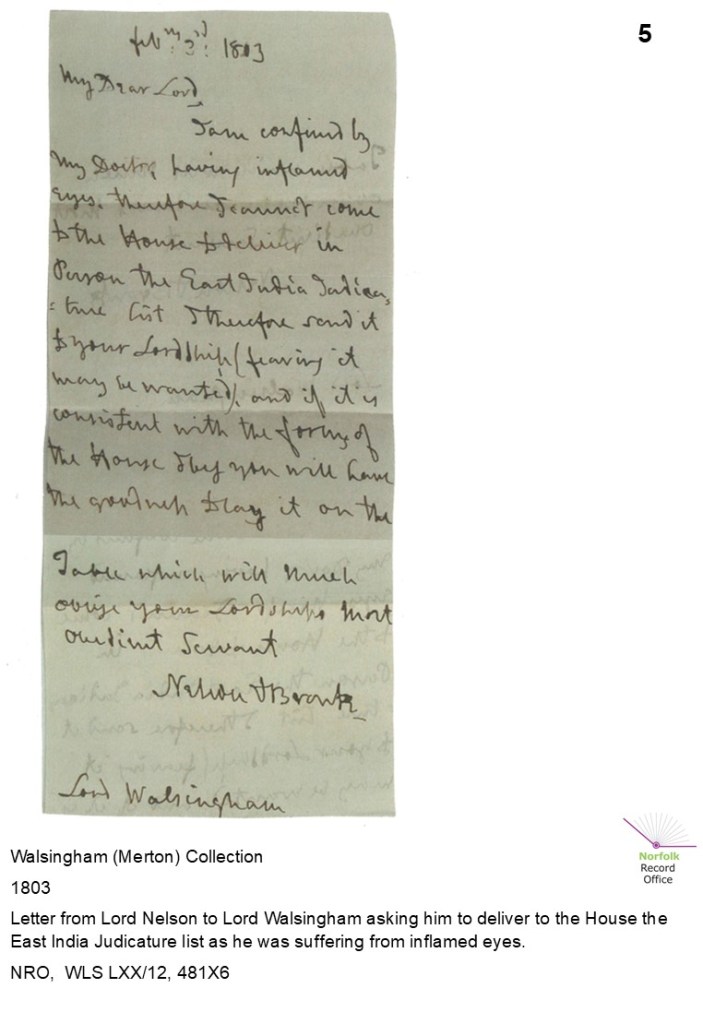 5
feb:ry: 3rd: 1803
My Dear Lord,
I am confined by
My Doctor, having inflamed
Eyes. therefore I cannot come
to the House to deliver in
Person the East India Judica,
:ture list I therefore send it
to your Lordship (fearing it
may be wanted), and if it is
consistent with the forms of
the House I beg you will have
the goodness to lay it on the
Table which will much
oblige your Lordships most
obedient Servant
Nelson & Bronte
Lord Walsingham
Norfolk
Record
Office
Walsingham (Merton) Collection
1803
Letter from Lord Nelson to Lord Walsingham asking him to deliver to the House the
East India Judicature list as he was suffering from inflamed eyes.
NRO,  WLS LXX/12, 481X6